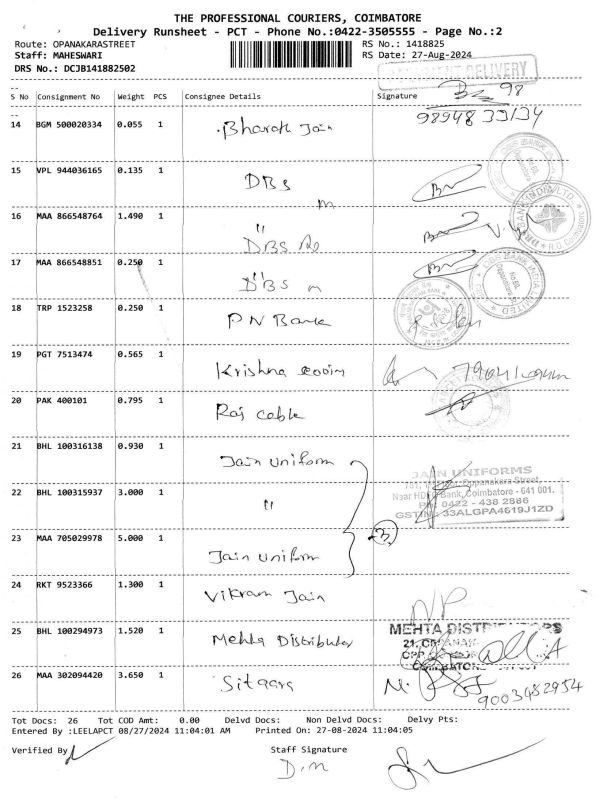 THE PROFESSIONAL COURIERS, COIMBATORE
Delivery Runsheet - PCT - Phone No.:0422-3505555 - Page No.:2
Route: OPANAKARASTREET RS No.: 1418825
Staff: MAHESWARI RS Date: 27-Aug-2024
DRS No.: DCJB141882502
DELIVERY
98
S No Consignment No Weight PCS Consignee Details Signature
14 BGM 500020334 0.055 1 Bharath Jain 98948 33134
15 VPL 944036165 0.135 1 DBS
16 MAA 866548764 1.490 1 " DBS
17 MAA 866548851 0.250 1 " DBS
18 TRP 1523258 0.250 1 PN Bank
19 PGT 7513474 0.565 1 Krishna
20 PAK 400101 0.795 1 Raj Cable
21 BHL 100316138 0.930 1 Jain Uniform
JAIN UNIFORMS
Oppanakara Street,
Near HDFC Bank, Coimbatore - 641 001.
PH: 0422 - 438 2886
GSTIN: 33ALGPA4619J1ZD
22 BHL 100315937 3.000 1 "
23 MAA 705029978 5.000 1 Jain Uniform
3
24 RKT 9523366 1.300 1 Vikram Jain
25 BHL 100294973 1.520 1 Mehta Distributor
MEHTA DISTRIBUTORS
26 MAA 302094420 3.650 1 Sitaara 9003482954
Tot Docs: 26 Tot COD Amt: 0.00 Delvd Docs: Non Delvd Docs: Delvy Pts:
Entered By :LEELAPCT 08/27/2024 11:04:01 AM Printed On: 27-08-2024 11:04:05
Verified By Staff Signature
D.M